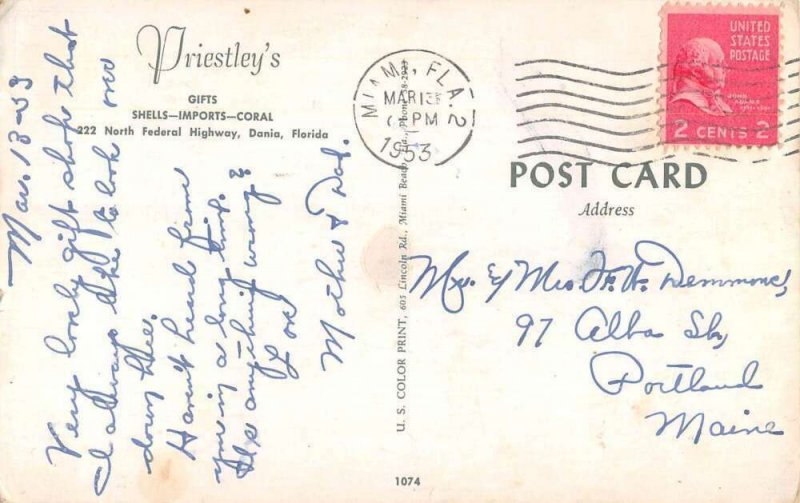 Priestley's
GIFTS
SHELLS—IMPORTS—CORAL
222 North Federal Highway, Dania, Florida
Mar. 13 - 53
Very lovely gift shop that
I always like to look
down here.
Haven't heard from
you in a long time.
Is anything wrong?
Love
Mother & Dad.
U. S. COLOR PRINT, 605 Lincoln Rd., Miami Beach, Fla., Phone 58-2923
1074
MIAMI, FLA. 2
MAR 13
PM
1953
UNITED
STATES
POSTAGE
JOHN
ADAMS
2 CENTS 2
POST CARD
Address
Mr. & Mrs. F. W. Demmons,
97 Alba St,
Portland
Maine